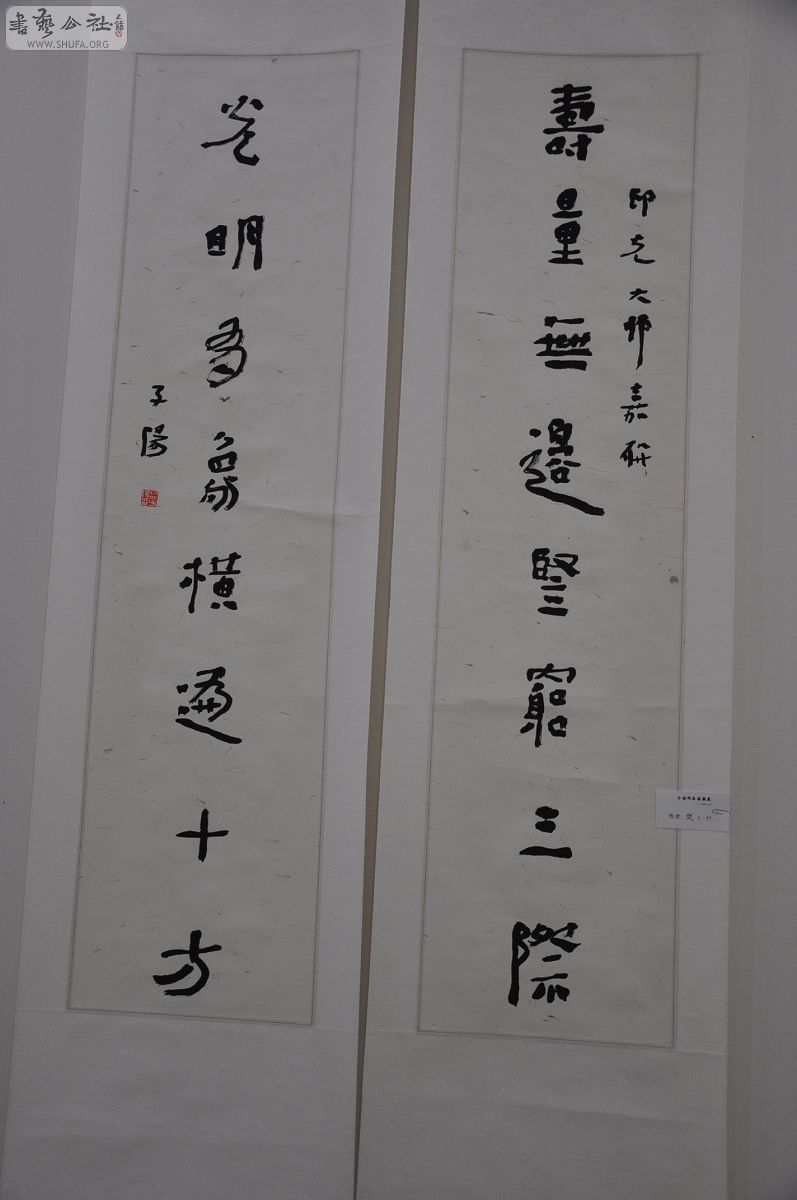 壽量無邊豎窮三際
印光大師嘉聯
光明有象橫遍十方
子陽
書藝公社
WWW.SHUFA.ORG
作者: